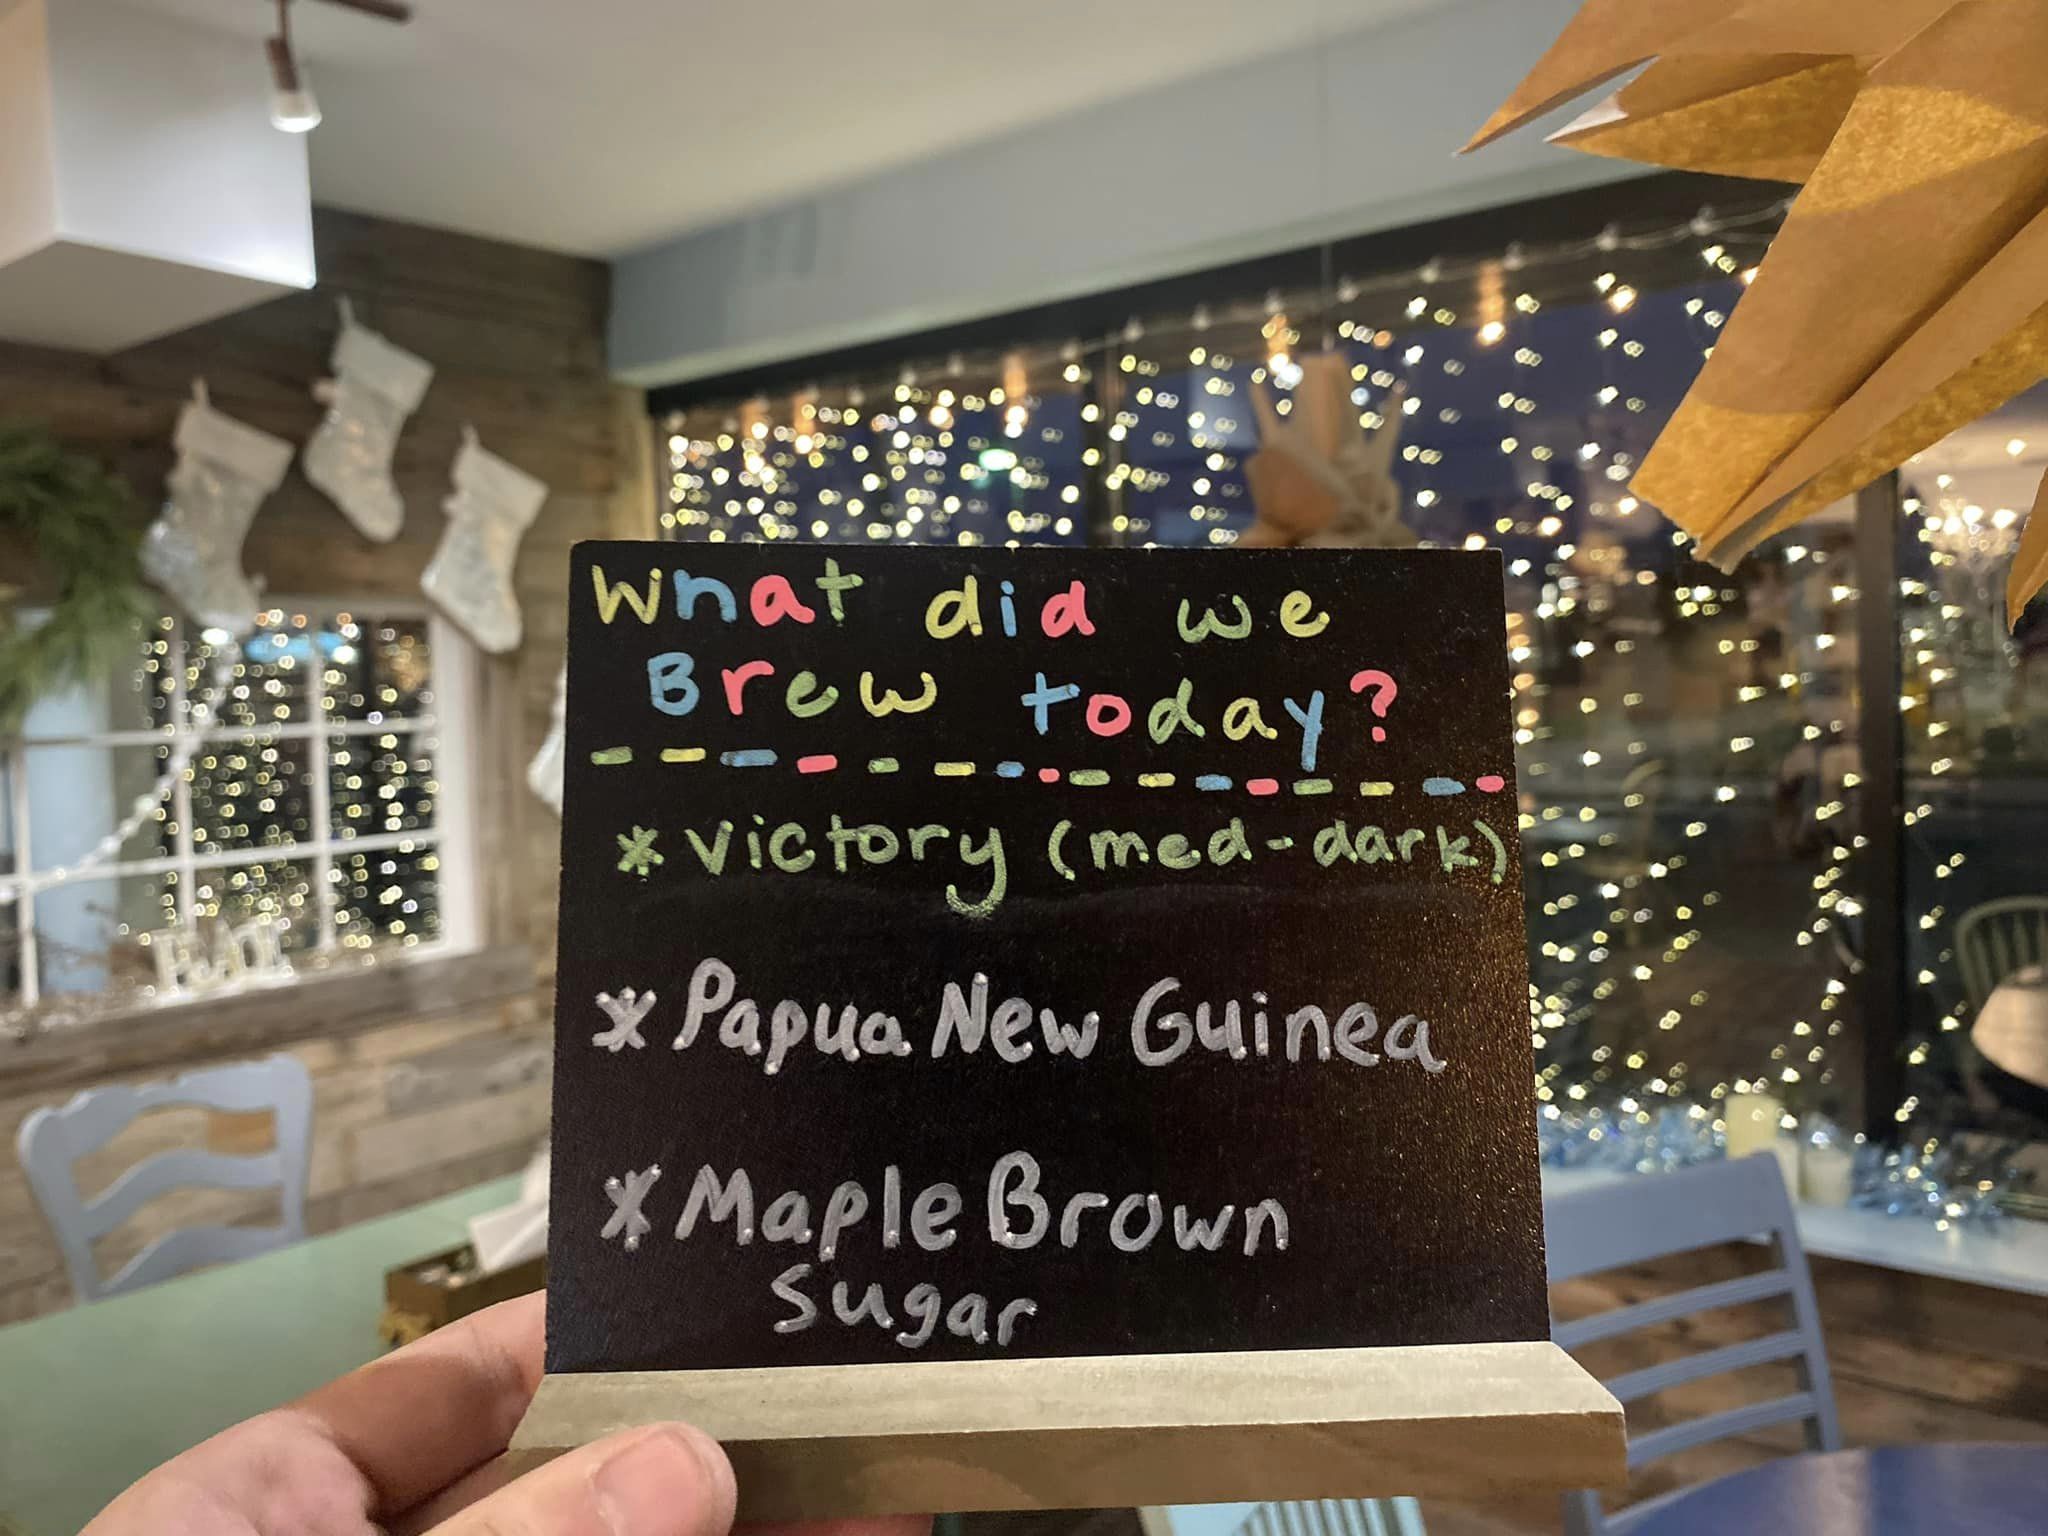 What did we
Brew today?
* Victory (med-dark)
* Papua New Guinea
* Maple Brown
Sugar